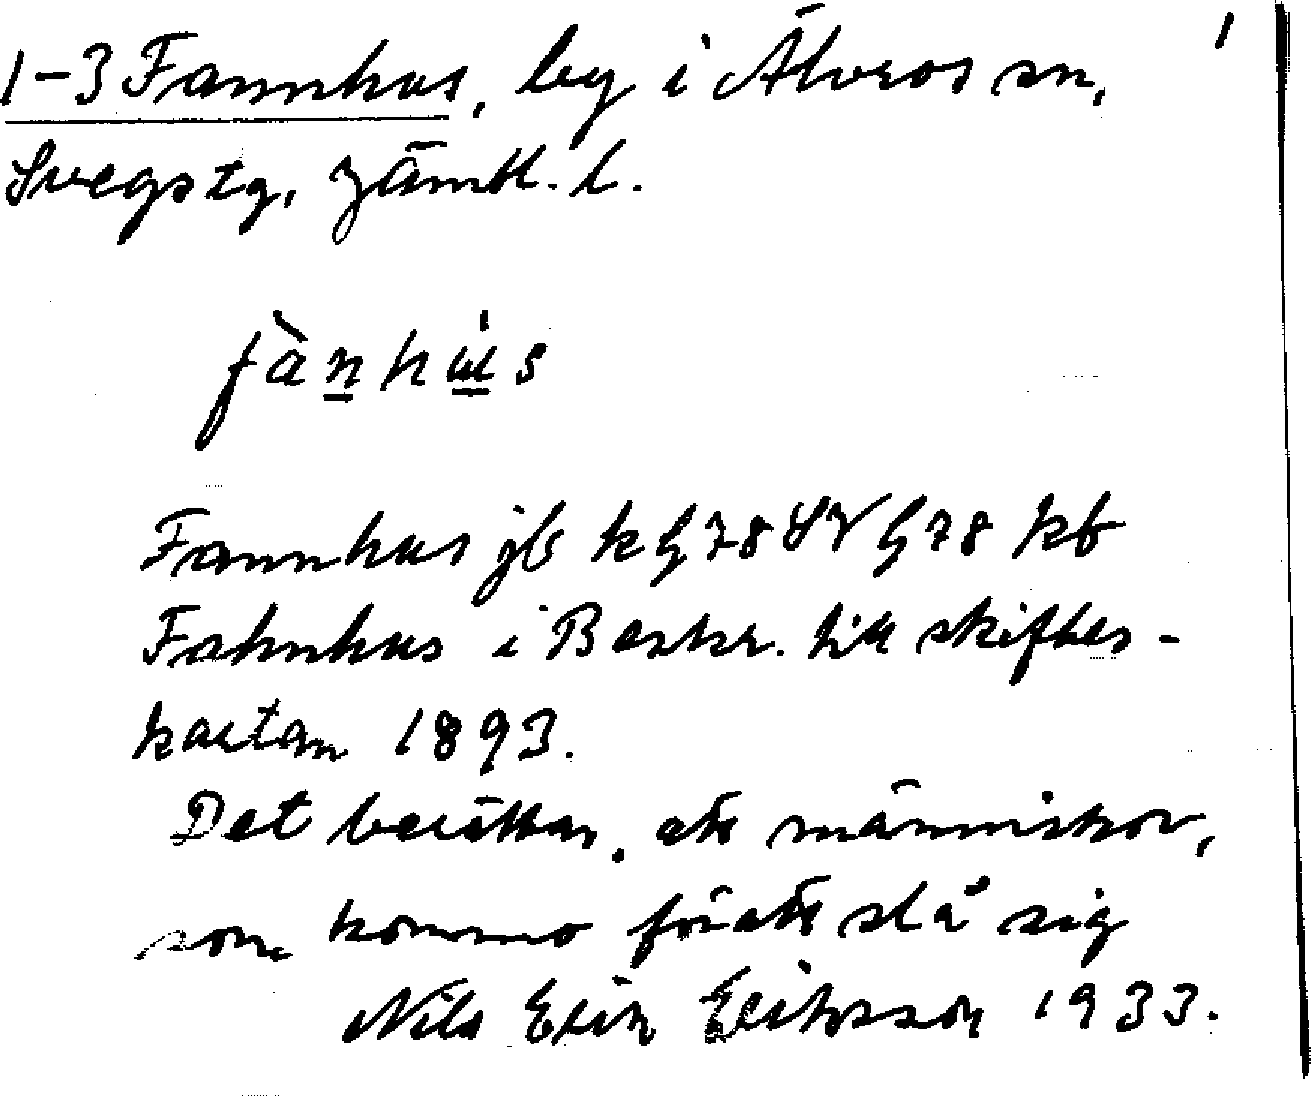 1
1-3 Fannhus, by i Älvros sn,
Svegs tg, Jämtl. l.
fànhús
Fannhus jb
Fahnhus i Beskr. till skiftes-
kartan 1893.
Det berättas, att människor,
som kommo för att slå sig
Nils Erik Eriksson 1933.